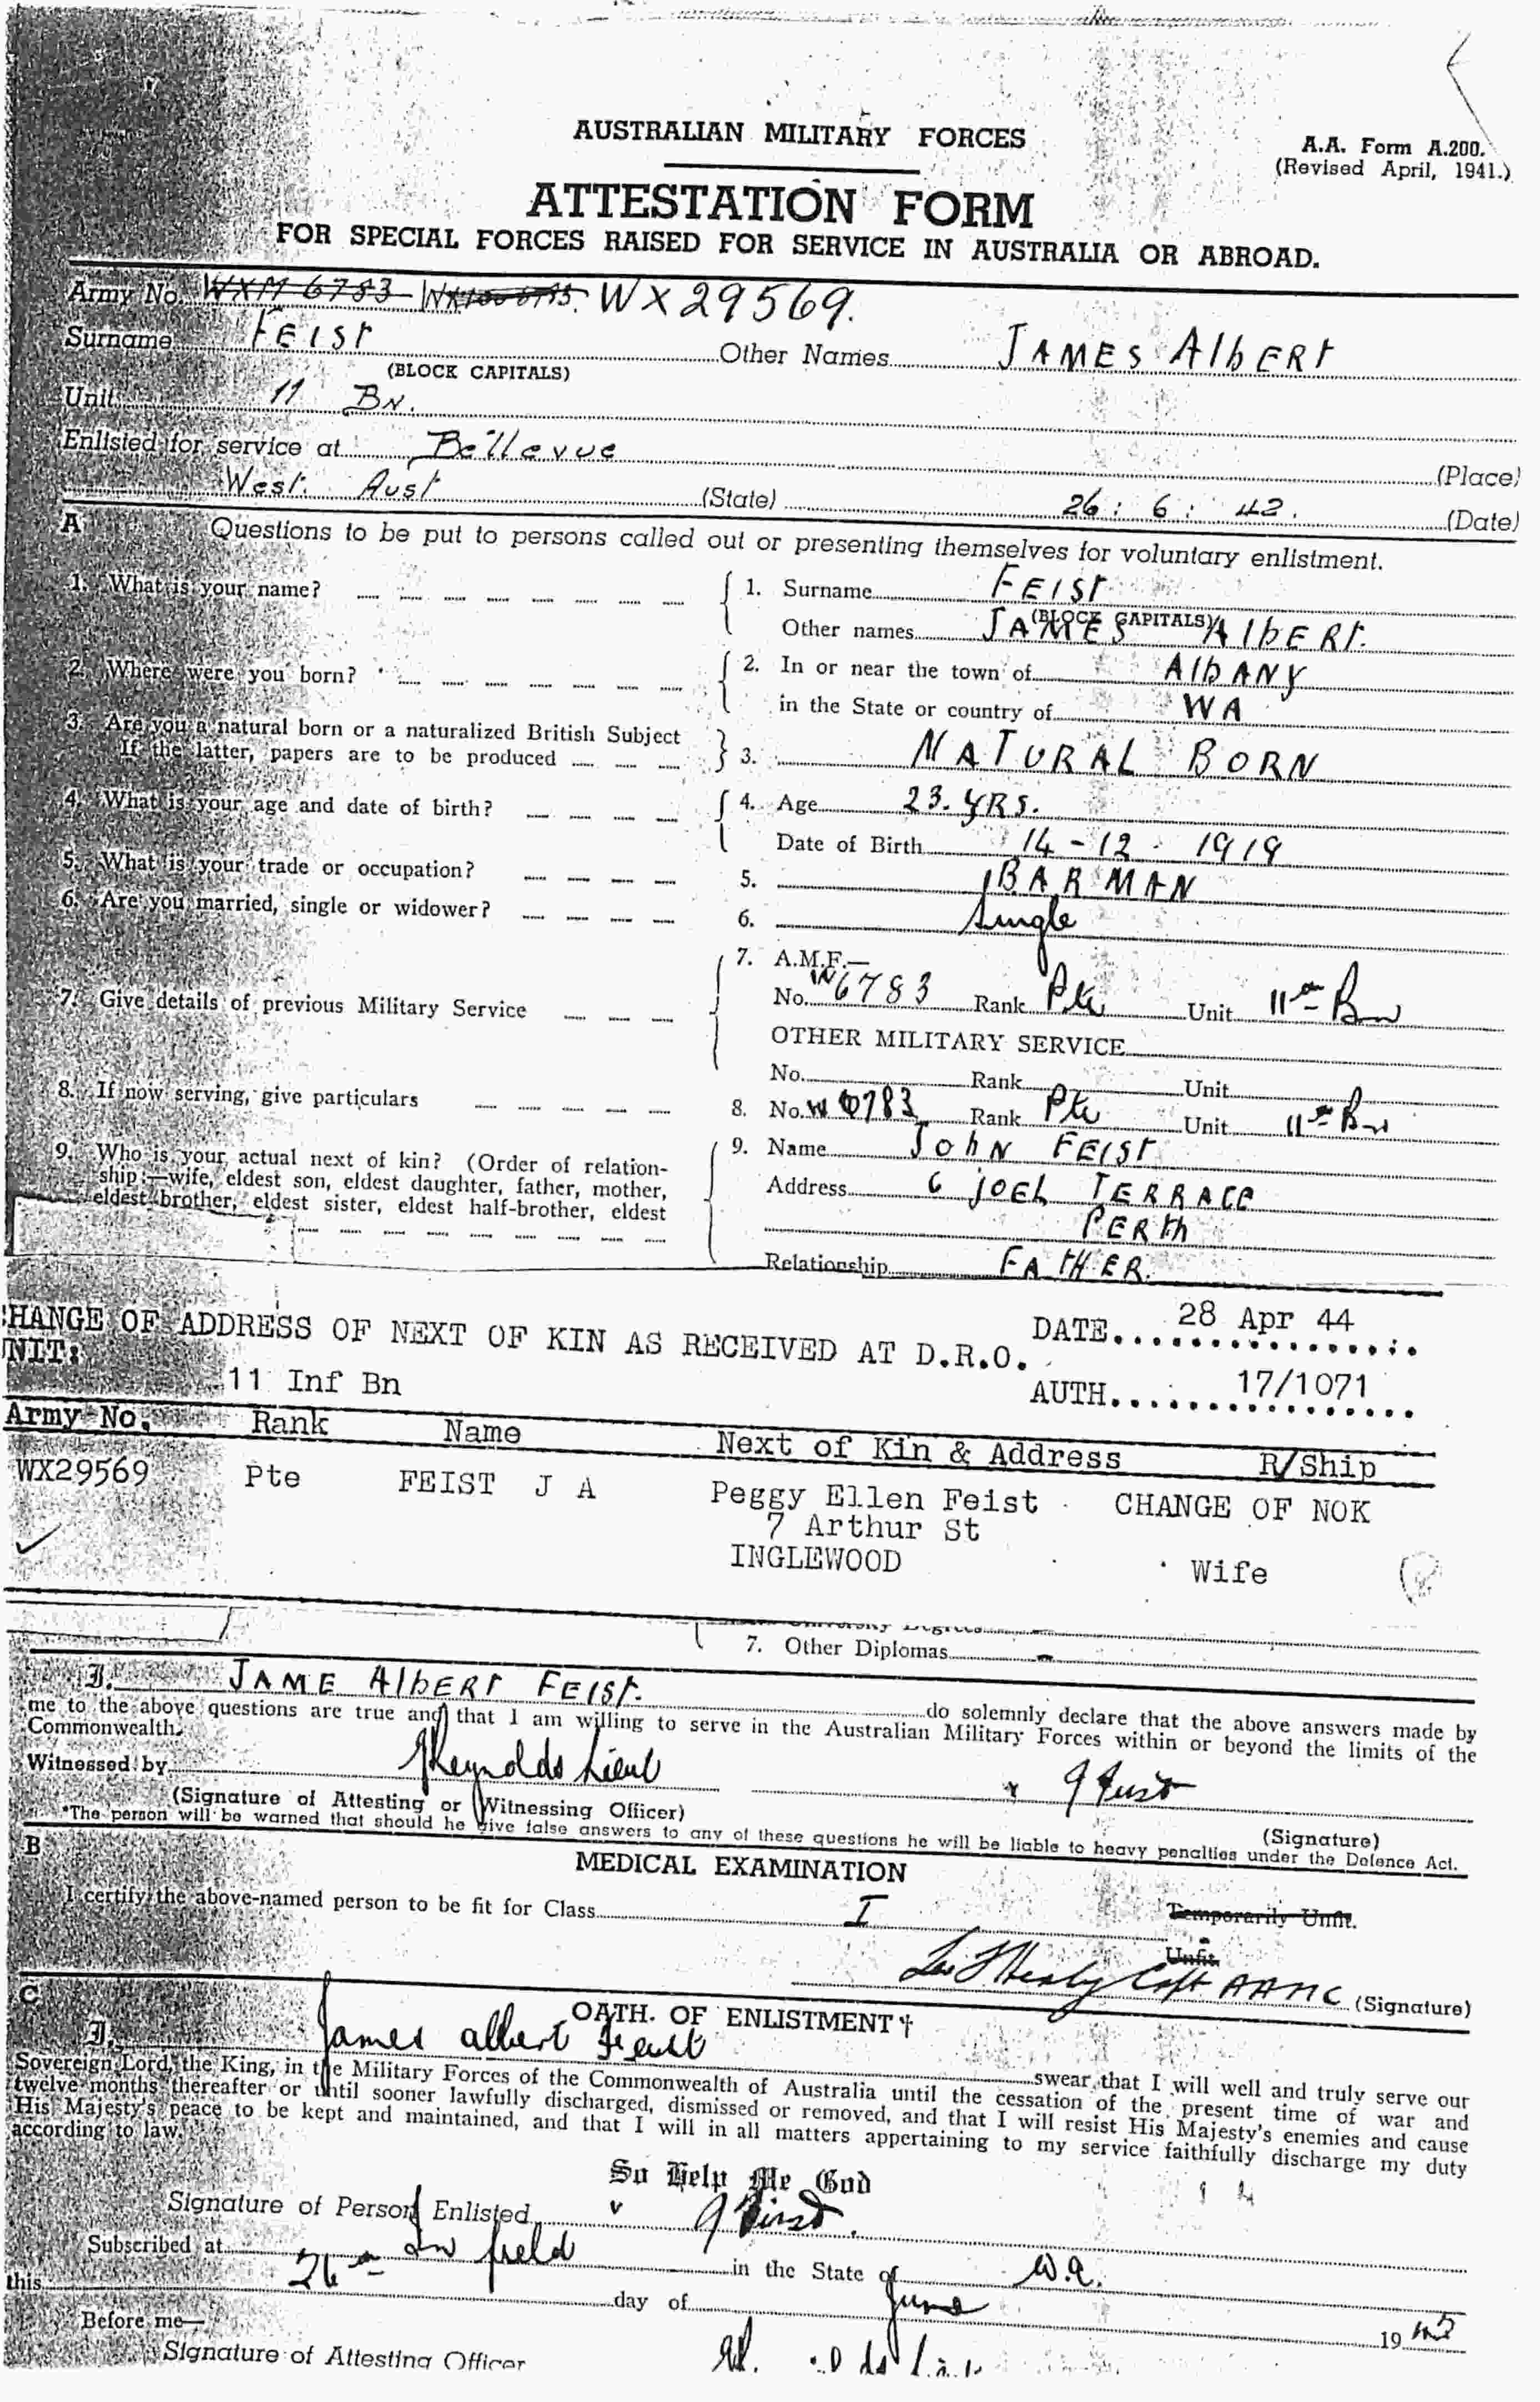 AUSTRALIAN MILITARY FORCES
A.A. Form A.200.
(Revised April, 1941.)
ATTESTATION FORM
FOR SPECIAL FORCES RAISED FOR SERVICE IN AUSTRALIA OR ABROAD.
Army No. WXM 6783 WX29569.
Surname FEIST Other Names JAMES AlbERT
(BLOCK CAPITALS)
Unit 11 BN.
Enlisted for service at Bellevue (Place)
West. Aust (State) 26 : 6 : 42. (Date)
A Questions to be put to persons called out or presenting themselves for voluntary enlistment.
1. What is your name? 1. Surname FEIST
(BLOCK CAPITALS)
Other names JAMES AlbERT.
2. Where were you born? 2. In or near the town of AlbANY
in the State or country of WA
3. Are you a natural born or a naturalized British Subject
If the latter, papers are to be produced 3. NATURAL BORN
4. What is your age and date of birth? 4. Age 23. YRS.
Date of Birth 14-12-1919
5. What is your trade or occupation? 5. BARMAN
6. Are you married, single or widower? 6. Single
7. Give details of previous Military Service 7. A.M.F.—
No. W6783 Rank Pte Unit 11th Bn
OTHER MILITARY SERVICE
No. Rank Unit
8. If now serving, give particulars 8. No. W6783 Rank Pte Unit 11th Bn
9. Who is your actual next of kin? (Order of relation-
ship:—wife, eldest son, eldest daughter, father, mother,
eldest brother, eldest sister, eldest half-brother, eldest
9. Name JOhN FEIST
Address 6 JOEL TERRACE
PERTh
Relationship FATHER.
CHANGE OF ADDRESS OF NEXT OF KIN AS RECEIVED AT D.R.O. DATE 28 Apr 44
UNIT: 11 Inf Bn AUTH 17/1071
Army No. Rank Name Next of Kin & Address R/Ship
WX29569 Pte FEIST J A Peggy Ellen Feist CHANGE OF NOK
7 Arthur St
INGLEWOOD Wife
7. Other Diplomas -
I, JAME AlbERT FEIST. do solemnly declare that the above answers made by
me to the above questions are true and that I am willing to serve in the Australian Military Forces within or beyond the limits of the
Commonwealth.
Witnessed by Reynolds Lieut x J Feist
(Signature of Attesting or Witnessing Officer) (Signature)
*The person will be warned that should he give false answers to any of these questions he will be liable to heavy penalties under the Defence Act.
B MEDICAL EXAMINATION
I certify the above-named person to be fit for Class I Temporarily Unfit.
Unfit.
Capt AAMC (Signature)
C OATH. OF ENLISTMENT†
I, James albert Feist swear that I will well and truly serve our
Sovereign Lord, the King, in the Military Forces of the Commonwealth of Australia until the cessation of the present time of war and
twelve months thereafter or until sooner lawfully discharged, dismissed or removed, and that I will resist His Majesty's enemies and cause
His Majesty's peace to be kept and maintained, and that I will in all matters appertaining to my service faithfully discharge my duty
according to law.
So Help Me God
Signature of Person Enlisted J Feist.
Subscribed at In field in the State of W.A.
this 26th day of June 19
Before me—
Signature of Attesting Officer